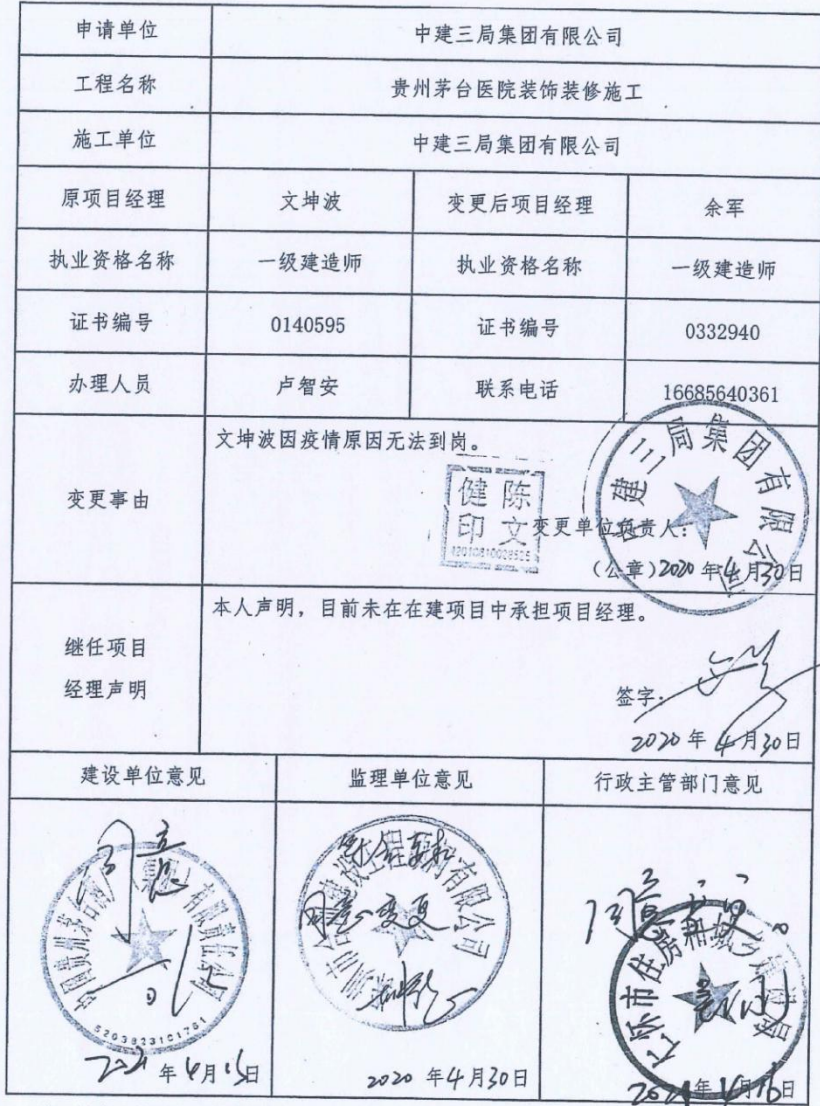 申请单位 中建三局集团有限公司
工程名称 贵州茅台医院装饰装修施工
施工单位 中建三局集团有限公司
原项目经理 文坤波 变更后项目经理 余军
执业资格名称 一级建造师 执业资格名称 一级建造师
证书编号 0140595 证书编号 0332940
办理人员 卢智安 联系电话 16685640361
变更事由
文坤波因疫情原因无法到岗。
陈文健印
变更单位负责人:
中建三局集团有限公司
(公章)2020年4月30日
继任项目
经理声明
本人声明，目前未在在建项目中承担项目经理。
签字:
2020年4月30日
建设单位意见 监理单位意见 行政主管部门意见
同意
5203823101761
年4月15日
同意变更
2020年4月30日
同意变更。
仁怀市住房和城乡建设局
年4月16日